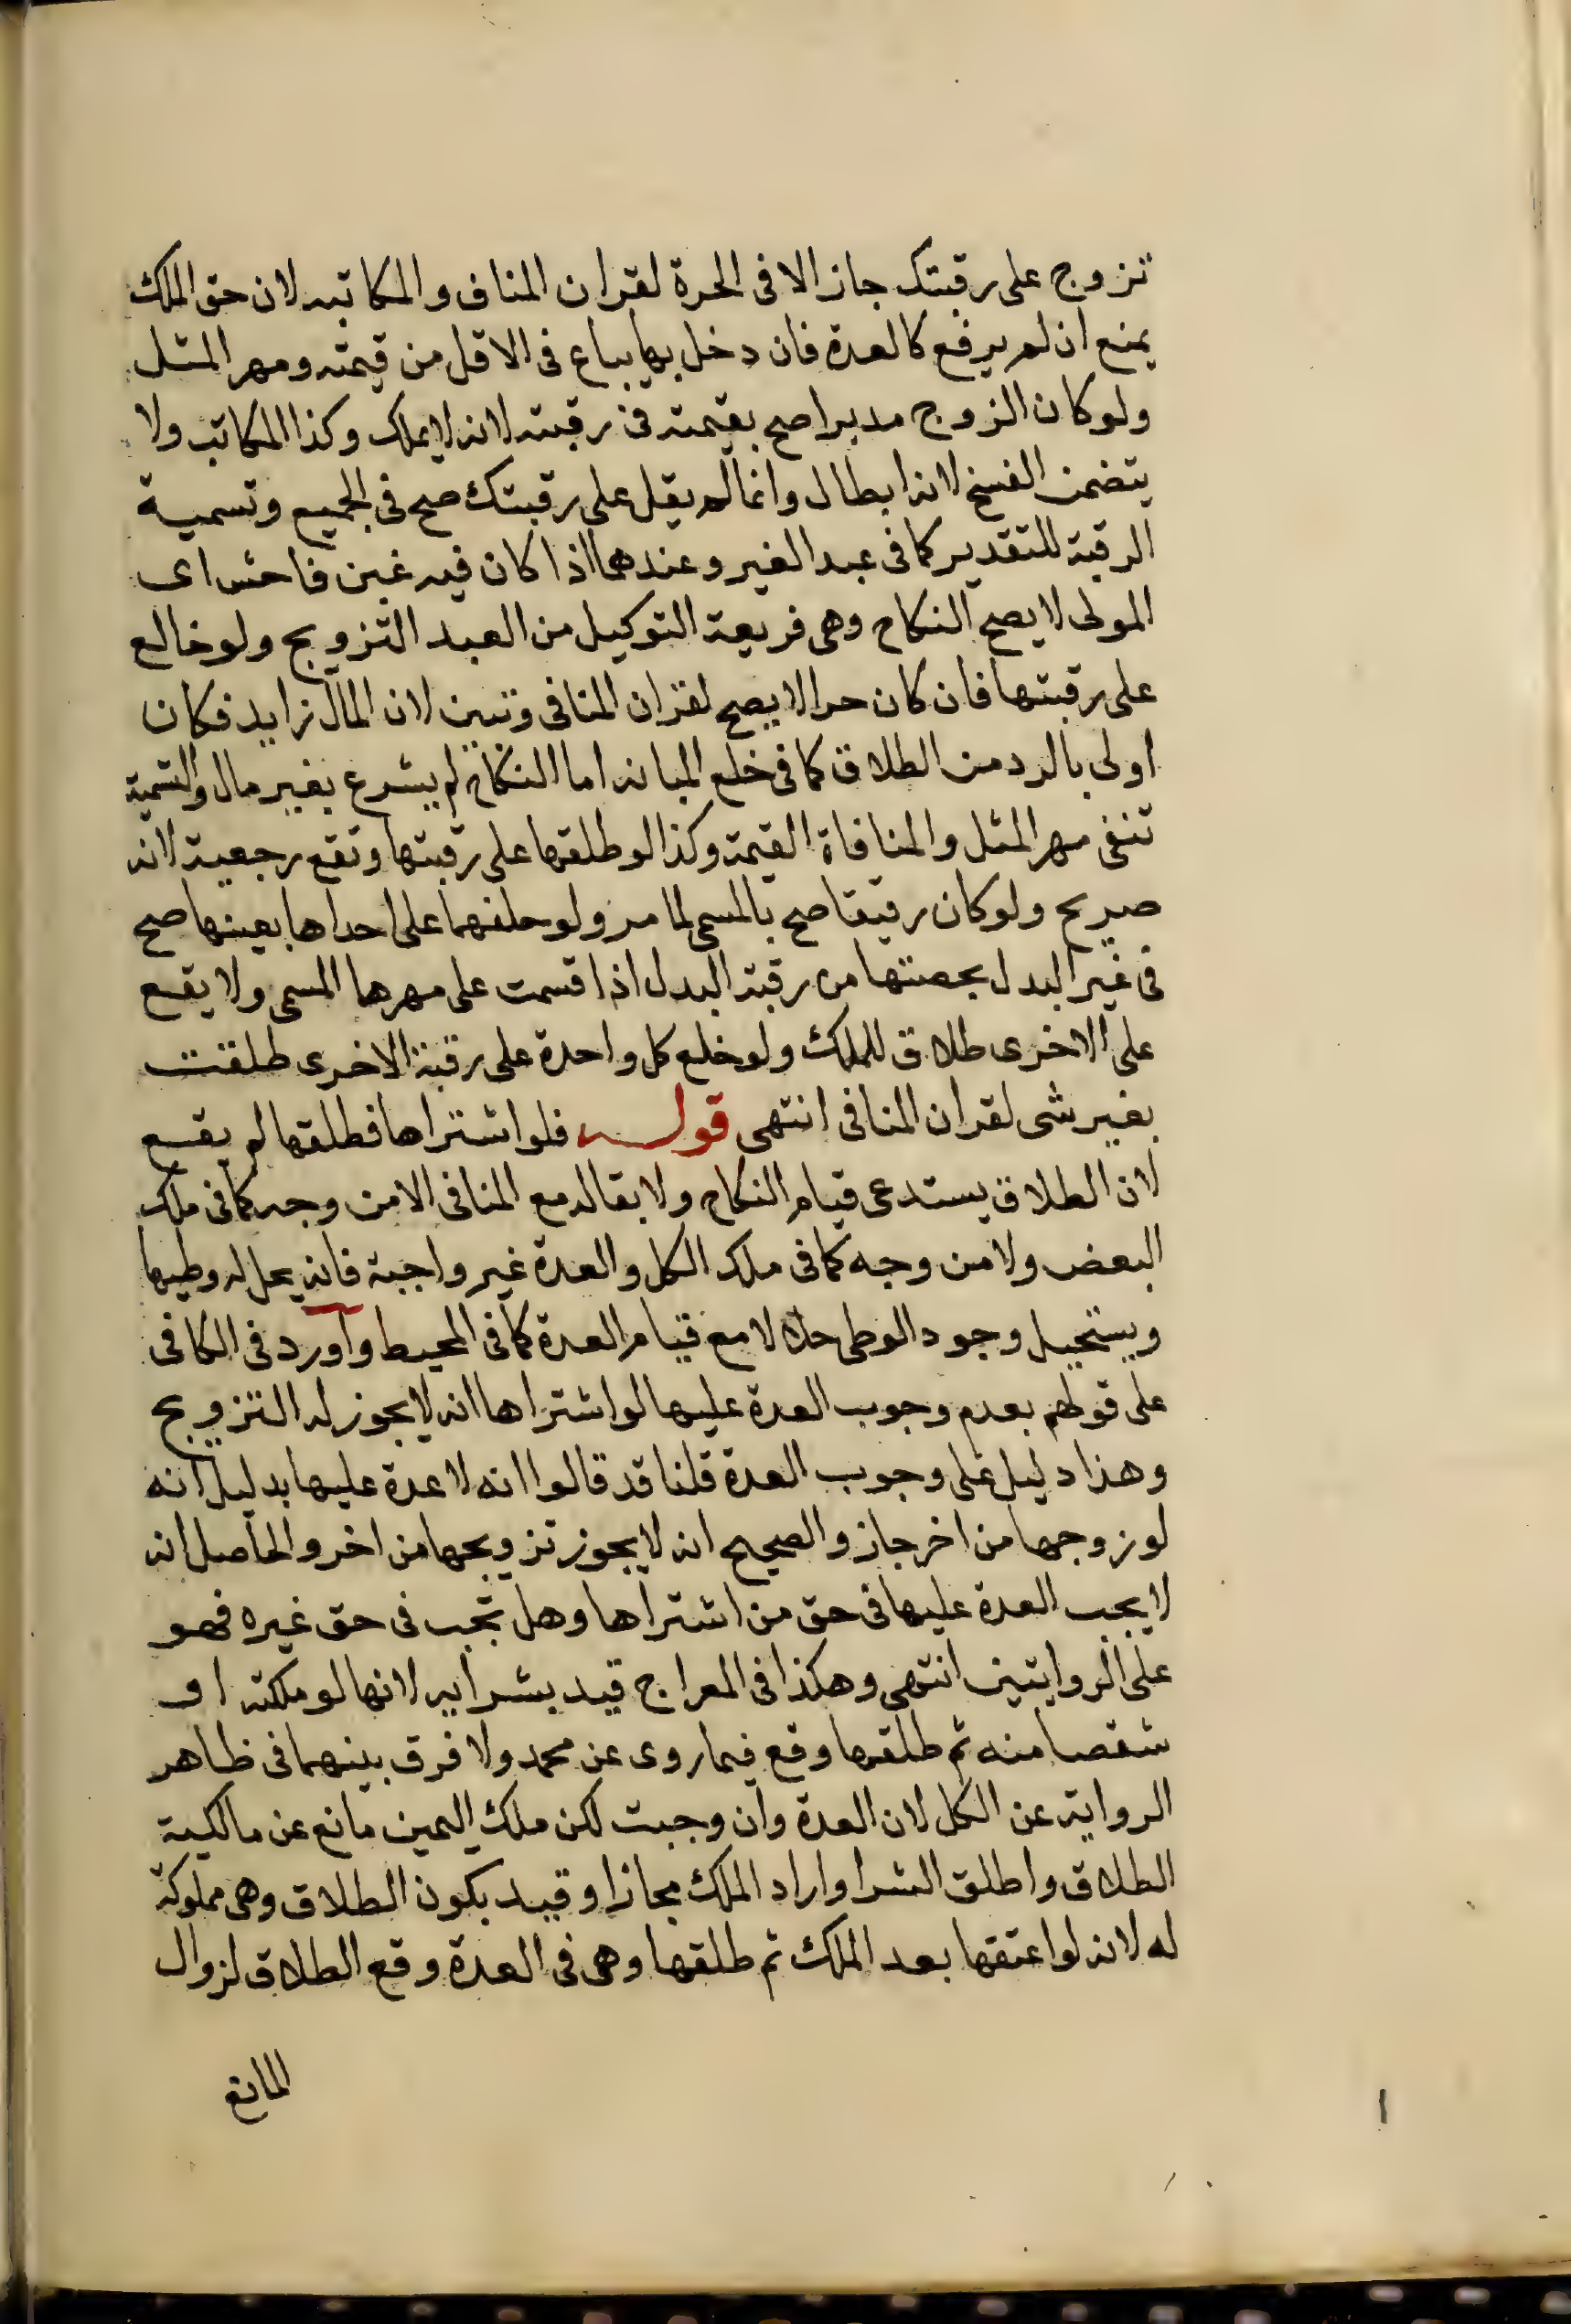 تزوج على رقبتك جاز الا فى الحرة لقران المنافى والمكاتبه لان حق الملك
يمنع ان لم يرفع كالعدة فان دخل بها يباع فى الاقل من قيمته ومهر المثل
ولوكان الزوج مدبرا صح بقيمته فى رقبته لانه لايملك وكذا المكاتب ولا
يتضمن الفسخ لانه ابطال وانما لم يقل على رقبتك صح فى الجميع وتسمية
الرقبة للتقدير كما فى عبد الغير وعندهما اذا كان فيه غبن فاحش اى
المولى لا يصح النكاح وهى فريعة التوكيل من العبد التزويج ولو خالع
على رقبتها فان كان حرا لا يصح لقران المنافى وتبين لان المال زايد فكان
اولى بالرد من الطلاق كما فى خلع المبانه اما النكاح لم يشرع بغير مال والتسمية
تنفى مهر المثل والمنافاة القيمة وكذا لو طلقها على رقبتها وتقع رجعية لانه
صريح ولوكان رقيقا صح بالمسمى لما مر ولو خلعهما على احداها بعينها صح
فى غير البدل بحصتها من رقبة البدل اذا قسمت على مهرها المسمى ولا يقع
على الاخرى طلاق للملك ولو خلع كل واحدة على رقبة الاخرى طلقت
بغير شى لقران المنافى انتهى قوله فلو اشتراها فطلقها لم يقع
لان الطلاق يستدعى قيام النكاح ولا بقا له مع المنافى الا من وجه كما فى ملك
البعض ولا من وجه كما فى ملك الكل والعدة غير واجبة فانه يحل له وطيها
ويستحيل وجود الوطى حلالا مع قيام العدة كما فى المحيط وآورد فى الكافى
على قولهم بعدم وجوب العدة عليها لو اشتراها انه لا يجوز له التزويج
وهذا دليل على وجوب العدة قلنا قد قالوا انه لا عدة عليها بدليل انه
لو زوجها من اخر جاز والصحيح انه لا يجوز تزويجها من اخر والحاصل انه
لا يجب العدة عليها فى حق من اشتراها وهل تجب فى حق غيره فهو
على الروايتين انتهى وهكذا فى المعراج قيد بشرايه لانها لو ملكته او
شقصا منه ثم طلقها وقع فيما روى عن محمد ولا فرق بينهما فى ظاهر
الرواية عن الكل لان العدة وان وجبت لكن ملك اليمين مانع عن مالكية
الطلاق واطلق الشرا واراد الملك مجازا وقيد بكون الطلاق وهى مملوكة
له لانه لو اعتقها بعد الملك ثم طلقها وهى فى العدة وقع الطلاق لزوال
المانع